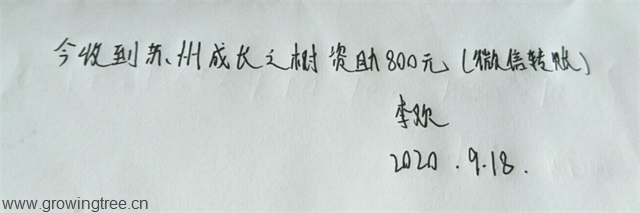 今收到苏州成长之树资助800元（微信转账）
李欢
2020.9.18.
www.growingtree.cn